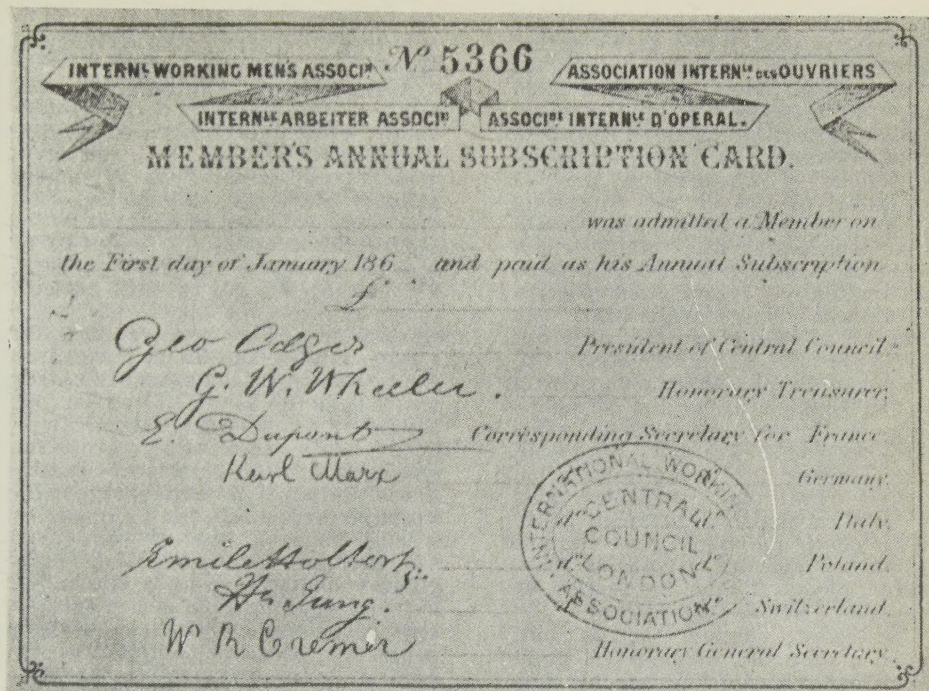 Nº 5366
INTERNL WORKING MEN'S ASSOCIN
ASSOCIATION INTERNLE DES OUVRIERS
INTERNLE ARBEITER ASSOCIN
ASSOCINE INTERNLE D'OPERAL.
MEMBER'S ANNUAL SUBSCRIPTION CARD.
was admitted a Member on
the First day of January 186 and paid as his Annual Subscription
£
Geo Odger President of Central Council.
G. W. Wheeler. Honorary Treasurer.
E. Dupont Corresponding Secretary for France.
Karl Marx Germany.
Italy.
Emile Holtorp Poland.
H. Jung. Switzerland.
W R Cremer Honorary General Secretary
INTERNATIONAL WORKING
CENTRAL
COUNCIL
LONDON
ASSOCIATION